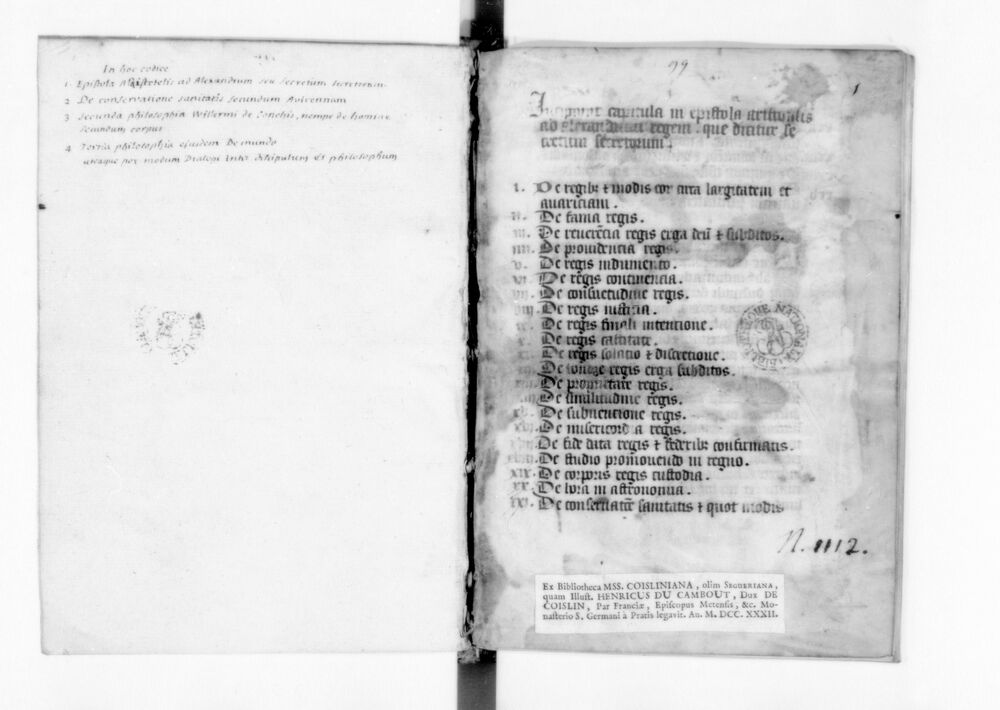 In hoc codice
1. Epistola Aristotelis ad Alexandrum seu secretum secretorum
2 De conservatione sanitatis secundum Avicennam
3 Secunda philosophia Willermi de Conchis, nempe de homine
secundum corpus
4 Tertia philosophia ejusdem De mundo
utraque per modum Dialogi inter discipulum et philosophum
99
1
Incipiunt capitula in epistola aristotilis
ad alexandrum regem. que dicitur se
cretum secretorum.
I. De regibȝ ⁊ modis eoꝝ circa largitatem et
auariciam.
II. De fama regis.
III. De reuerẽcia regis erga deũ ⁊ subditos.
IIII. De prouidencia regis.
V. De regis indumento.
VI. De regis continencia.
De consuetudine regis.
VIII. De regis iusticia.
De regis finali intencione.
X. De regis castitate.
XI. De regis solatio ⁊ discrecione.
De regis erga subditos.
De proprietate regis.
De similitudine regis.
XV. De subuencione regis.
XVI. De misericordia regis.
De fide data regis ⁊ federibȝ confirmatis.
De studio promouendo in regno.
XIX. De corporis regis custodia.
XX. De hora in astronomia.
XXI. De conseruatõe sanitatis ⁊ quot modis
BIBLIOTHEQUE NATIONALE
N. 1112.
Ex Bibliotheca MSS. COISLINIANA, olim SEGUERIANA,
quam Illust. HENRICUS DU CAMBOUT, Dux DE
COISLIN, Par Franciæ, Episcopus Metensis, &c. Mo-
nasterio S. Germani à Pratis legavit. An. M. DCC. XXXII.